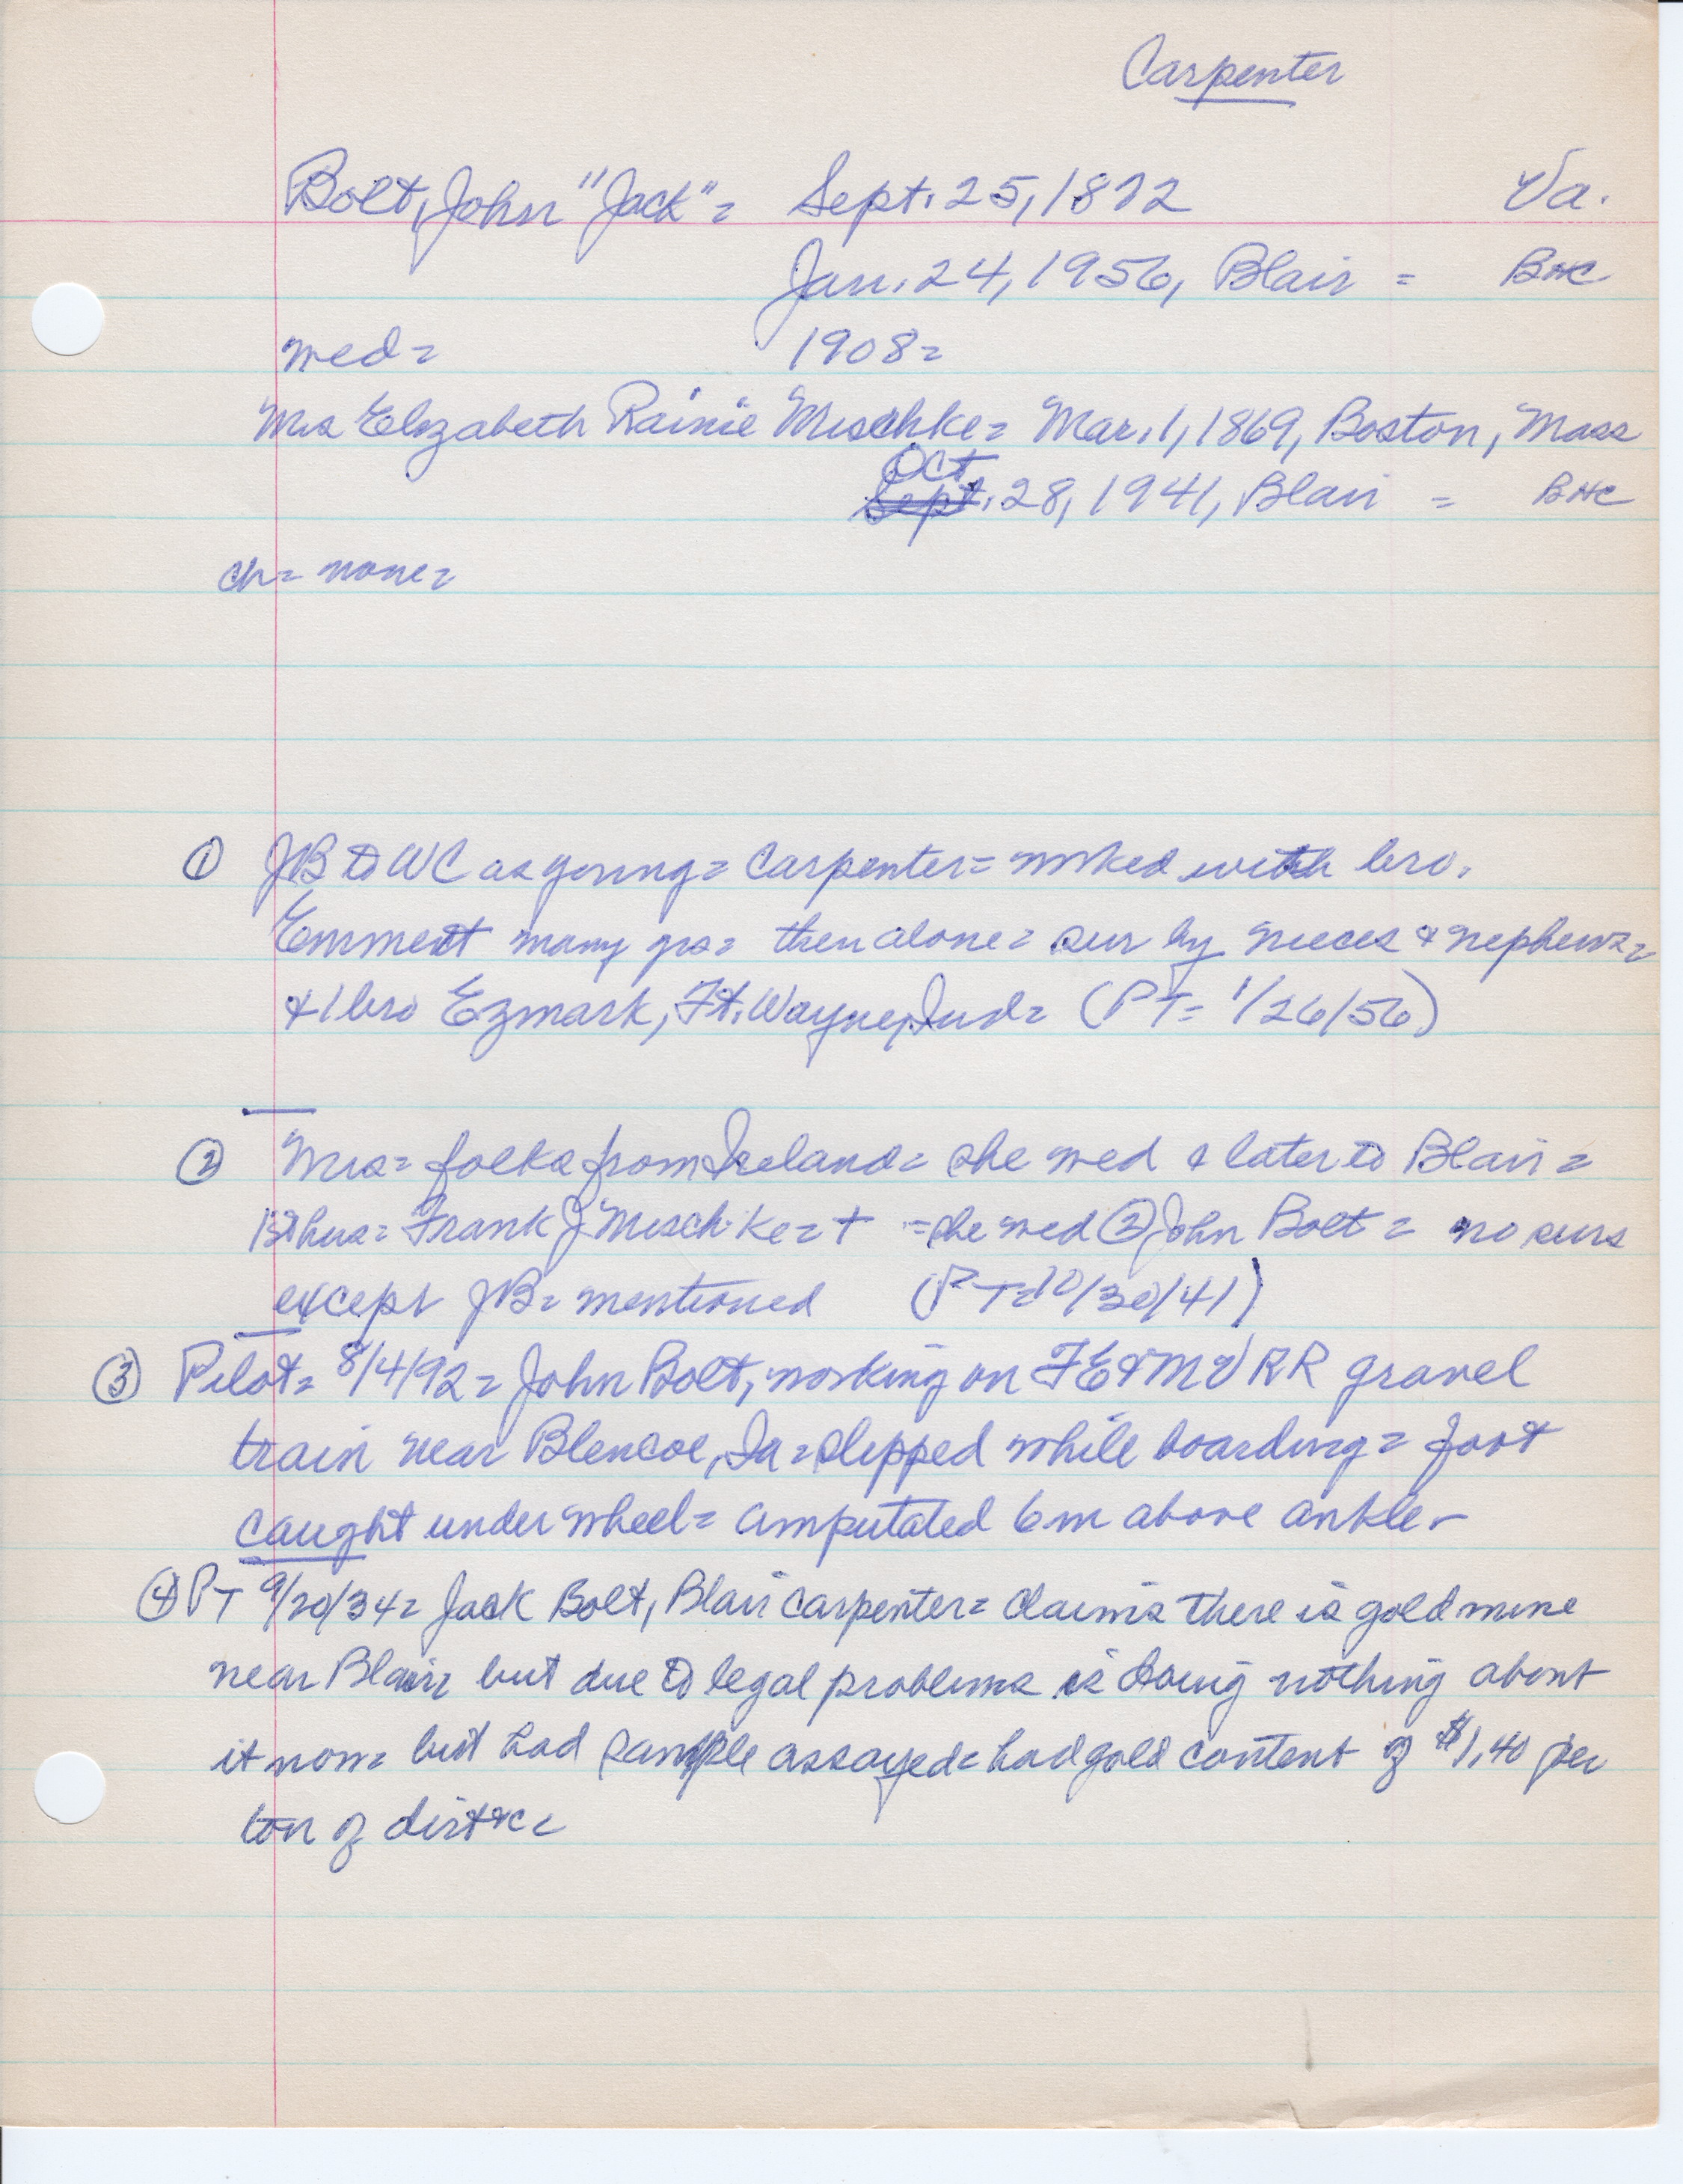 Carpenter
Bolt, John "Jack" = Sept. 25, 1872 Va.
Jan. 24, 1956, Blair = BHC
wed = 1908 =
Mrs Elizabeth Rainie Mischke = Mar. 1, 1869, Boston, Mass
Oct
Sept. 28, 1941, Blair = BHC
ch = none =
① JB to WC as young = Carpenter = worked with bro.
Emmett many yrs = then alone = sur by nieces & nephews =
& 1 bro Ezmark, Ft. Wayne, Ind = (PT = 1/26/56)
② Mrs = folks from Ireland = she wed & later to Blair =
1st hus = Frank J Mischke = + = she wed ② John Bolt = no surs
except JB = mentioned (PT = 10/30/41)
③ Pilot = 8/4/92 = John Bolt, working on FE & MV RR gravel
train near Blencoe, Ia = slipped while boarding = foot
caught under wheel = amputated 6 in above ankle -
④ PT 9/20/34 = Jack Bolt, Blair carpenter = claims there is gold mine
near Blair but due to legal problems is doing nothing about
it now = but had sample assayed = had gold content of $1.40 per
ton of dirt &c =